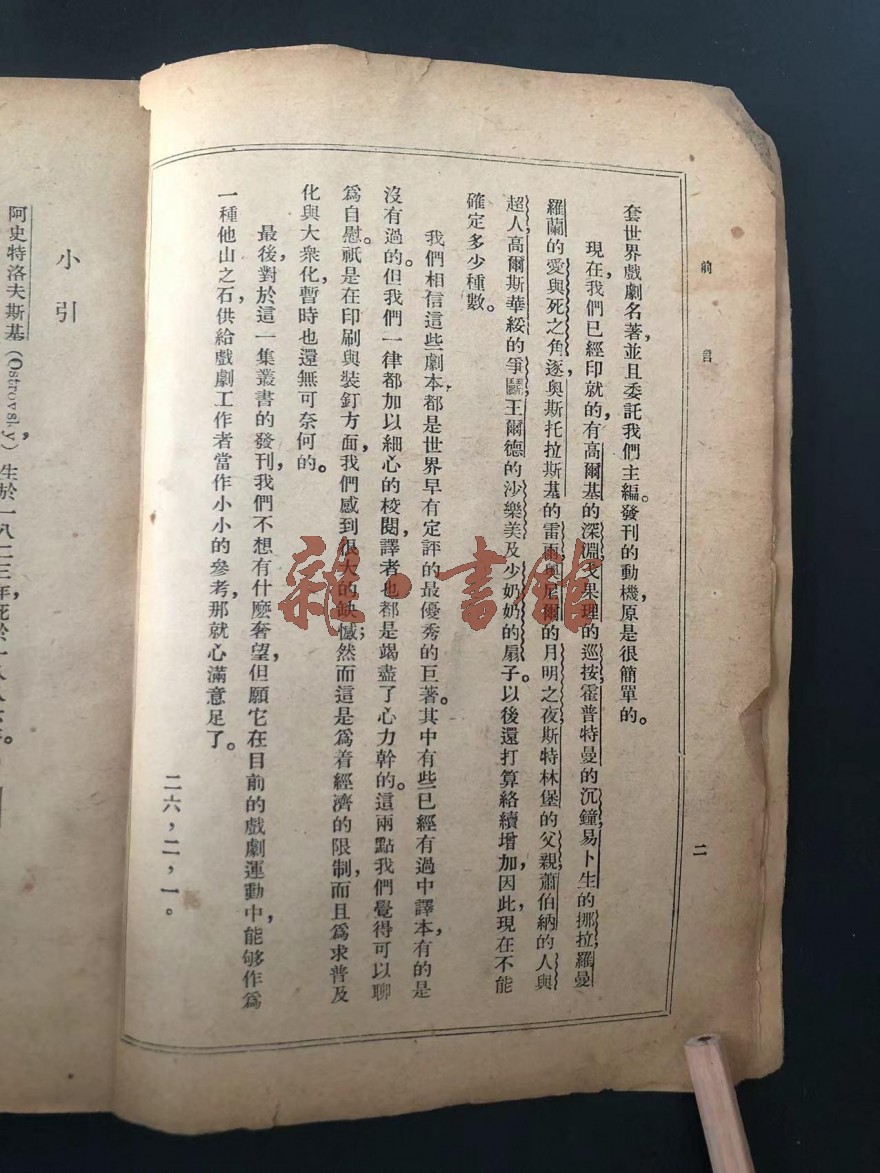 前言
二
套世界戲劇名著，並且委託我們主編。發刊的動機原是很簡單的。
現在，我們已經印就的，有高爾基的深淵，戈果理的巡按，霍普特曼的沉鐘，易卜生的挪拉，羅曼
羅蘭的愛與死之角逐，奧斯托拉斯基的雷雨，奧尼爾的月明之夜，斯特林堡的父親，蕭伯納的人與
超人，高爾斯華綏的爭鬭，王爾德的沙樂美及少奶奶的扇子。以後還打算絡續增加，因此，現在不能
確定多少種數。
我們相信這些劇本都是世界早有定評的最優秀的巨著。其中有些已經有過中譯本，有的是
沒有過的。但我們一律都加以細心的校閱，譯者也都是竭盡了心力幹的。這兩點我們覺得可以聊
爲自慰。祇是在印刷與裝釘方面，我們感到很大的缺憾；然而這是爲着經濟的限制，而且爲求普及
化與大衆化，暫時也還無可奈何的。
最後，對於這一集叢書的發刊，我們不想有什麼奢望，但願它在目前的戲劇運動中，能够作爲
一種他山之石，供給戲劇工作者當作小小的參考，那就心滿意足了。
二六，二，一。
小引
阿史特洛夫斯基（Ostrovsky），生於一八二三年，死於一八八六年。
雜·書館